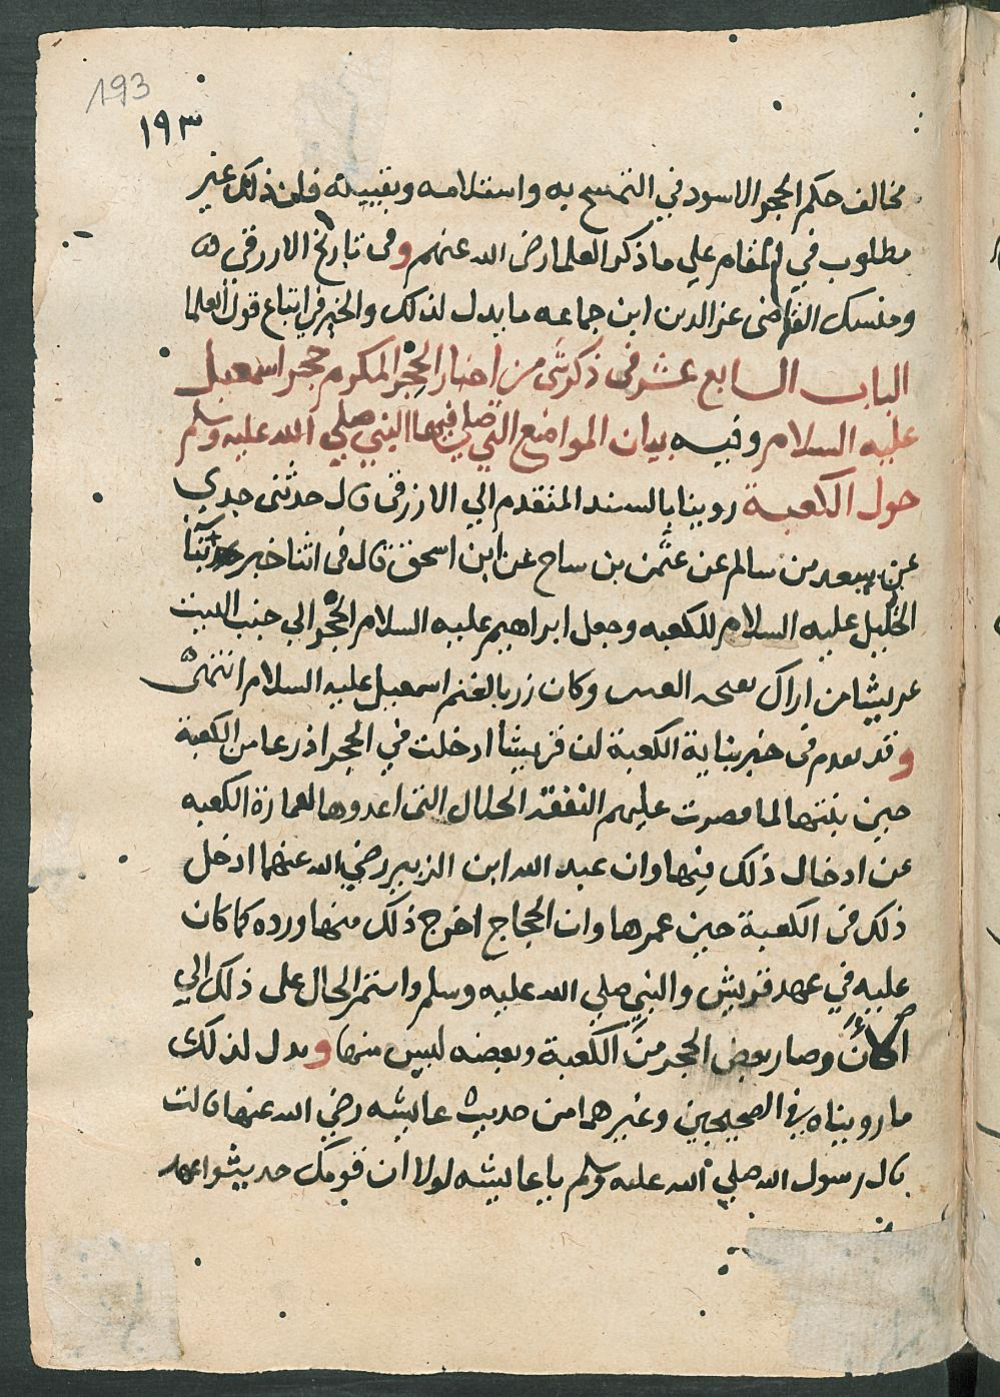 193
١٩٣
مخالف حكم الحجر الاسود في التمسح به واستلامه وتقبيله فان ذلك غير
مطلوب في المقام علي ما ذكر العلما رضي الله عنهم وفي تاريخ الازرقي
ومنسك القاضي عز الدين ابن جماعه ما يدل لذلك والخير في اتباع قول العلما
الباب السابع عشر في ذكر شي من اخبار الحجر المكرم حجر اسمعيل
عليه السلام وفيه بيان المواضع التي صلي فيها النبي صلي الله عليه وسلم
حول الكعبة روينا بالسند المتقدم الي الازرقي قال حدثني جدي
عن سعيد من سالم عن عثمن بن ساج عن ابن اسحق قال في اثنا خبر بنا
الخليل عليه السلام للكعبه وجعل ابراهيم عليه السلام الحجر الي جنب البيت
عريشا من اراك تقتحمه العنز وكان زربا لغنم اسمعيل عليه السلام انتهى
وقد تقدم في خبر بناية الكعبة ان قريشا ادخلت في الحجر اذرعا من الكعبة
حين بنتها لما قصرت عليهم النفقة الحلال التي اعدوها لعمارة الكعبه
عن ادخال ذلك فيها وان عبد الله ابن الزبير رضي الله عنهما ادخل
ذلك في الكعبة حين عمرها وان الحجاج اخرج ذلك منها ورده كما كان
عليه في عهد قريش والنبي صلي الله عليه وسلم واستمر الحال على ذلك الي
الان وصار بعض الحجر من الكعبة وبعضه ليس منها ويدل لذلك
ما رويناه في الصحيحين وغيرهما من حديث عايشه رضي الله عنها قالت
قال رسول الله صلي الله عليه وسلم يا عايشه لولا ان قومك حديثوا عهد